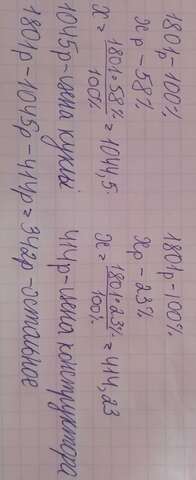 1801р-100%
хр-58%
х = 1801·58% / 100% = 1044,5.
1045р-цена куклы
1801р-100%
хр-23%
х = 1801·23% / 100% = 414,23
414р-цена конструктора
1801р-1045р-414р=342р-остальное